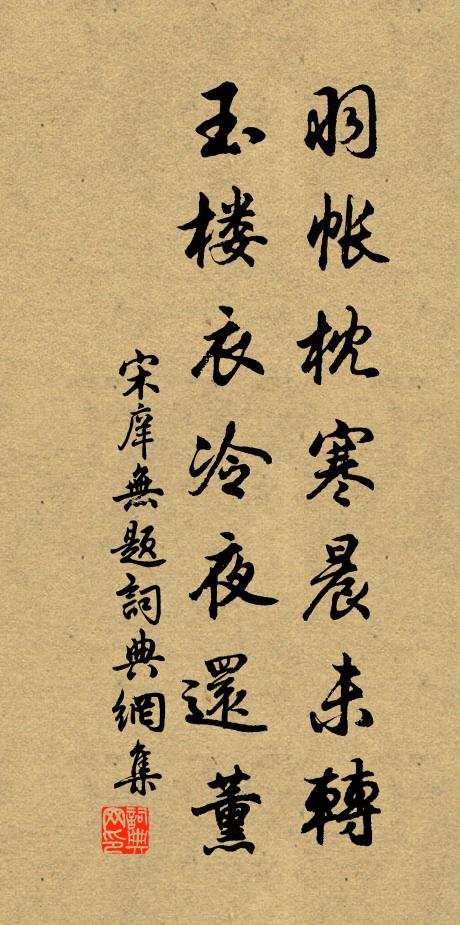 羽帐枕寒晨未轉
玉楼衣冷夜還薰
宋庠無题詞典網集
詞典网印